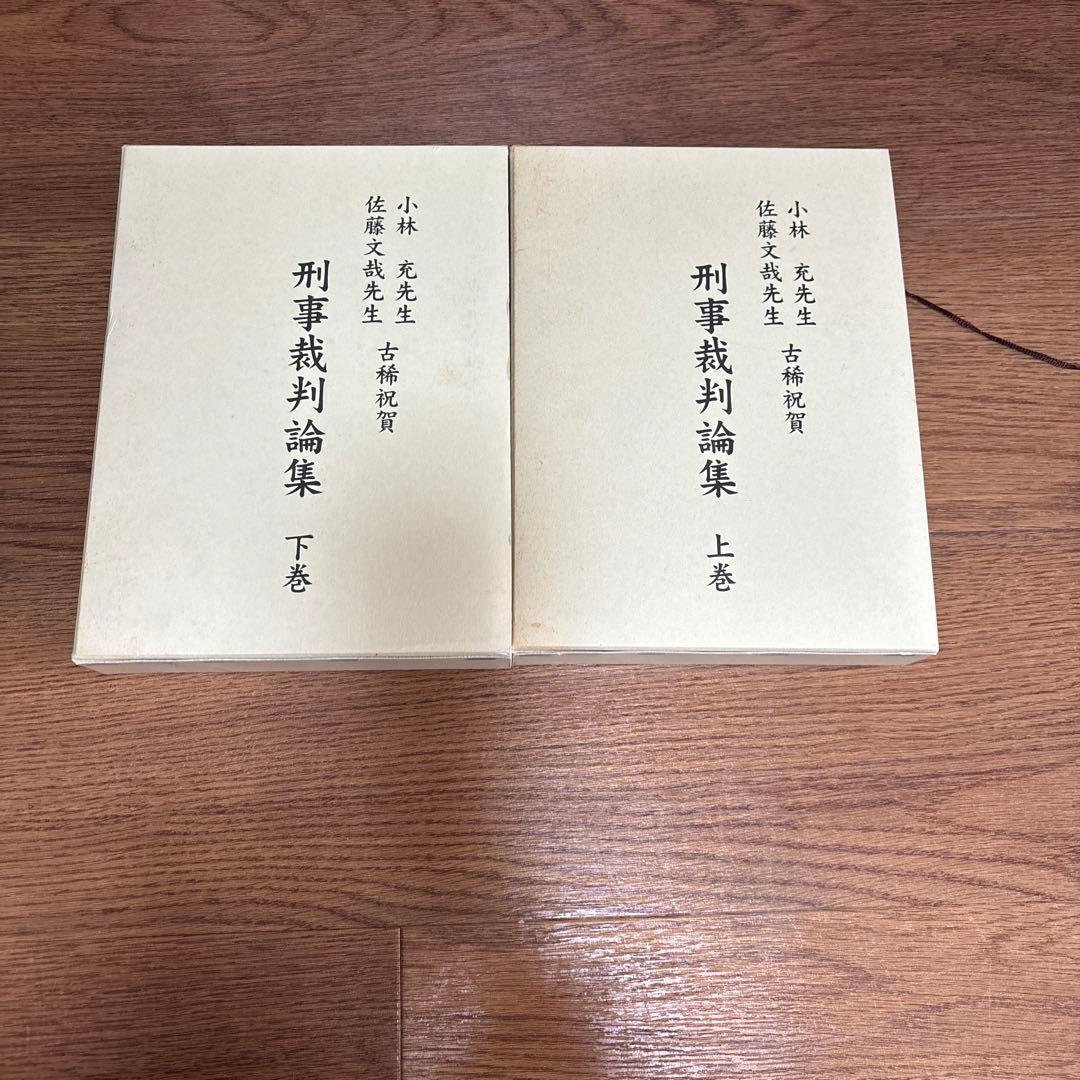 小林 充先生
佐藤文哉先生
古稀祝賀
刑事裁判論集 上巻
小林 充先生
佐藤文哉先生
古稀祝賀
刑事裁判論集 下巻